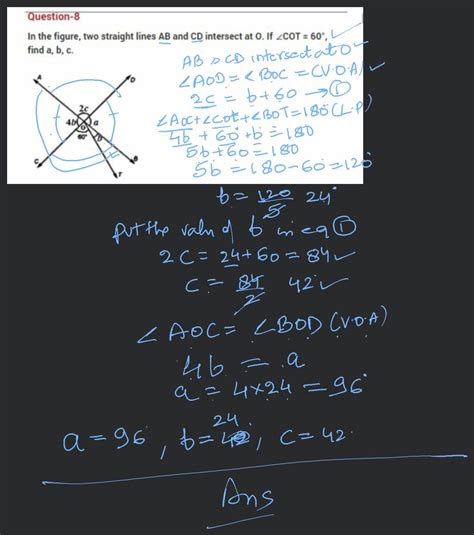 Question-8
In the figure, two straight lines AB and CD intersect at O. If ∠COT = 60°,
find a, b, c.
A
D
2c
4b
a
O
60°
b
C
B
T
AB » CD intersect at O
∠AOD = ∠BOC = (V.O.A)
2C = b+60 → ①
∠AOC+∠COT+∠BOT=180(L.P)
4b + 60° + b = 180
5b+60 = 180
5b = 180-60 = 120°
b = 120/5 24°
Put the valu of b in eq ①
2C = 24+60 = 84
C = 84/2 42°
∠AOC = ∠BOD (V.O.A)
4b = a
a = 4×24 = 96°
a = 96°, b = 24, C = 42°
Ans